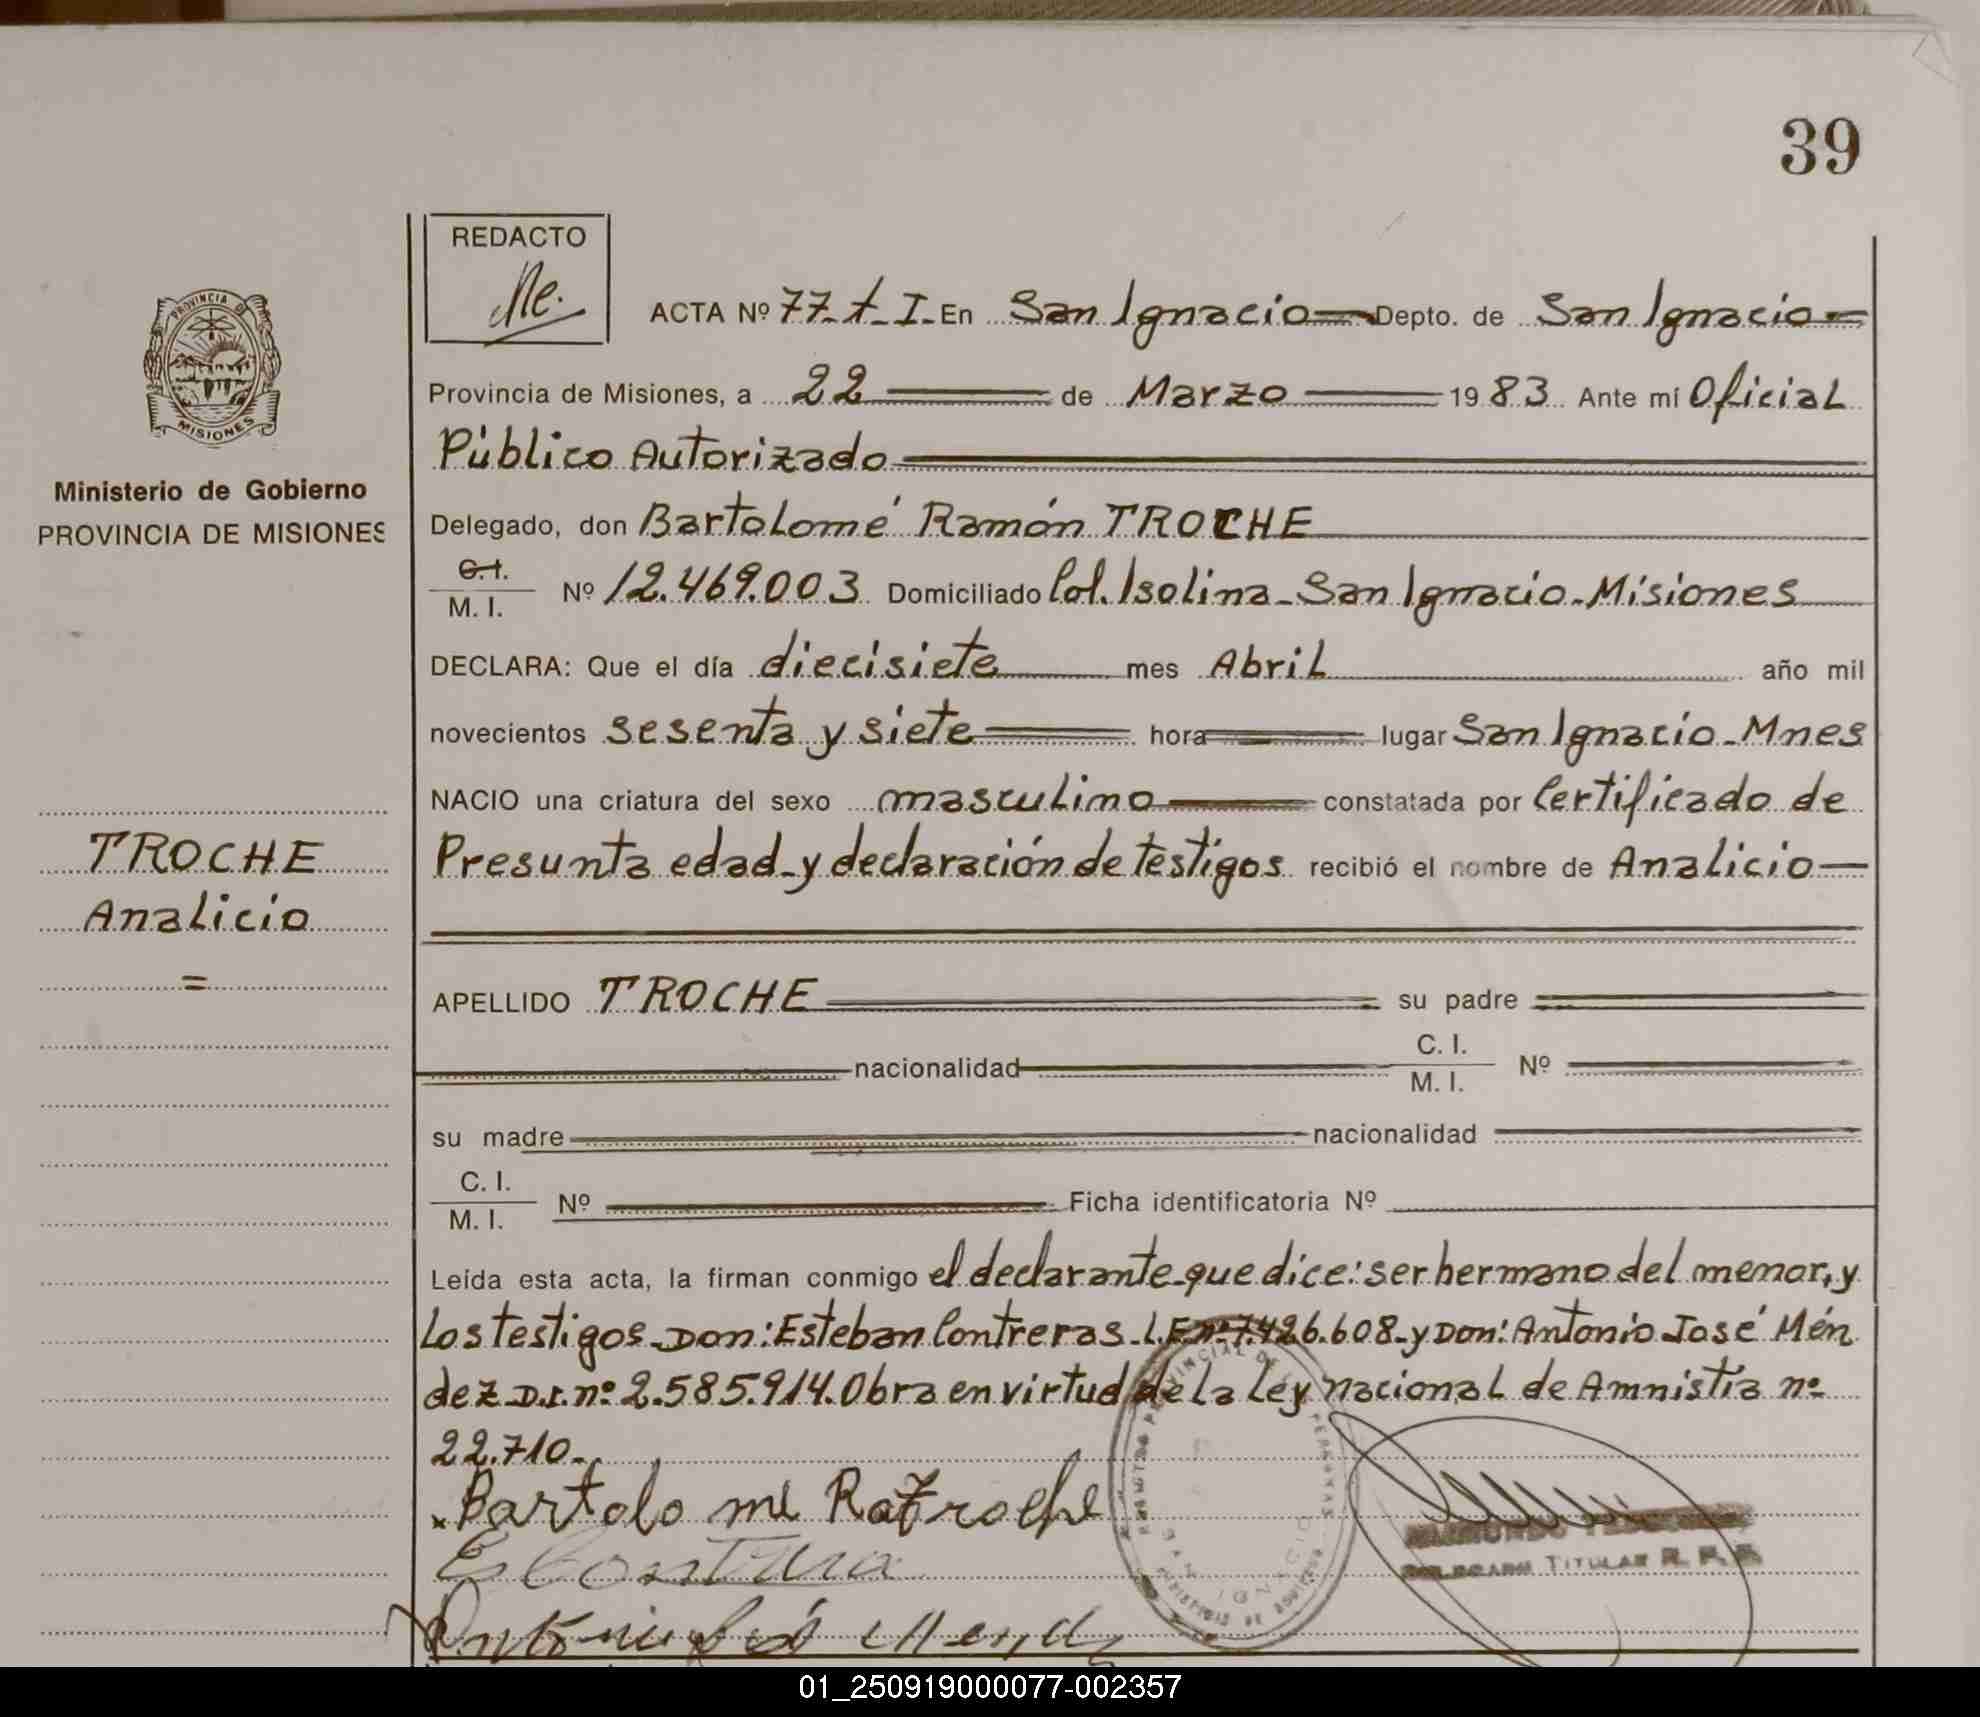 39
REDACTO
PROVINCIA DE
MISIONES
Ministerio de Gobierno
PROVINCIA DE MISIONES
ACTA Nº 77-t-I-En San Ignacio Depto. de San Ignacio
Provincia de Misiones, a 22 de Marzo 1983 Ante mí Oficial
Público Autorizado
Delegado, don Bartolomé Ramón TROCHE
C.I.
M. I. Nº 12.469.003 Domiciliado Col. Isolina-San Ignacio-Misiones
DECLARA: Que el día diecisiete mes Abril año mil
novecientos sesenta y siete hora lugar San Ignacio-Mnes
NACIO una criatura del sexo masculino constatada por Certificado de
Presunta edad-y declaración de testigos recibió el nombre de Analicio
TROCHE
Analicio
=
APELLIDO TROCHE su padre
nacionalidad C. I.
M. I. Nº
su madre nacionalidad
C. I.
M. I. Nº Ficha identificatoria Nº
Leída esta acta, la firman conmigo el declarante-que dice: ser hermano del menor, y
Los testigos-Don: Esteban Contreras-L.E.nº7.426.608-y Don: Antonio José Mén
dez D.I. nº 2.585.914. Obra en virtud de la Ley nacional de Amnistía nº
22.710-
Bartolo me Ra Troche
DELEGADO TITULAR R. P. P.
SAN IGNACIO
01_250919000077-002357